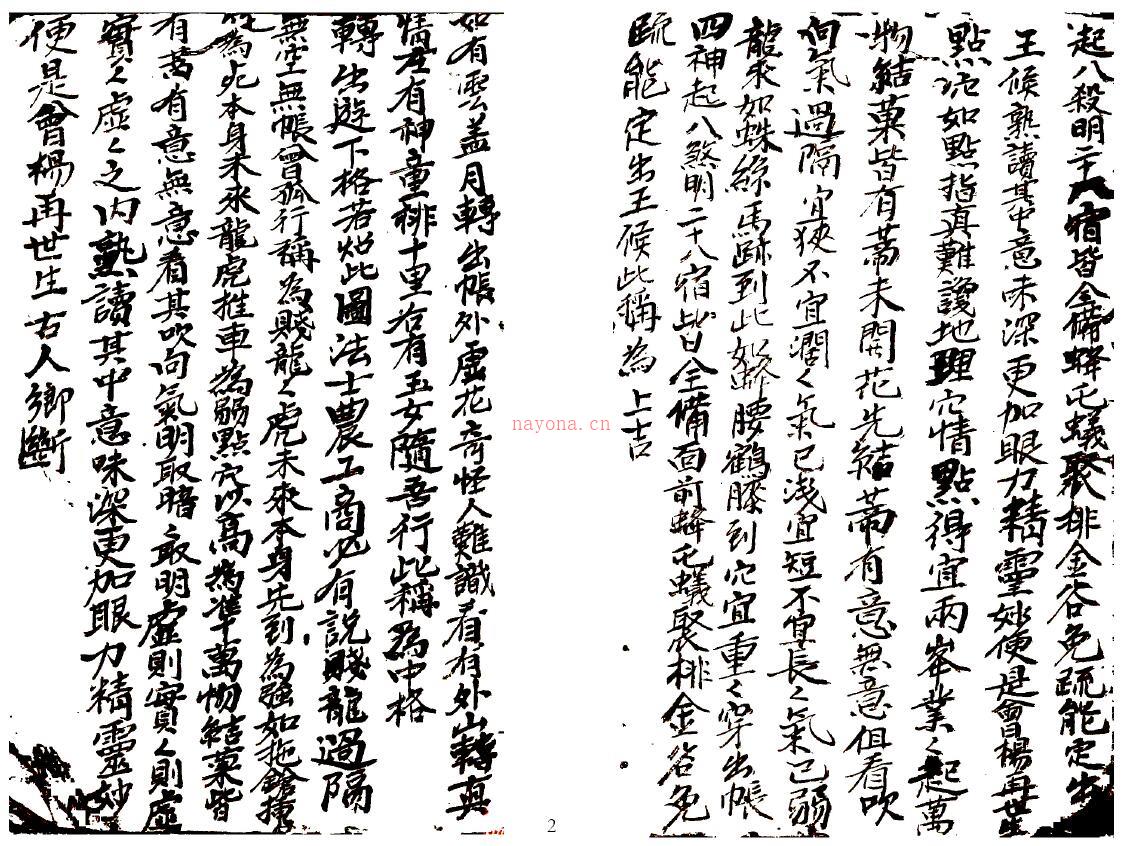 起八殺明二十八宿皆全備蜂屯蟻聚排金谷免疏能定出
王候熟讀其中意味深更加眼力精靈妙便是曾楊再世生
點穴如點指真難讒地理穴情點得宜兩峯業〻起萬
物結菓皆有蒂未開花先結蒂有意無意但看吹
向氣過隔宜狹不宜濶〻氣已淺宜短不宜長〻氣已弱
龍來如蛛絲馬跡到此如蜂腰鶴膝到穴宜重〻穿出帳
四神起八煞明二十八宿皆全備面前蜂屯蟻聚排金谷免
疏能定出王候此稱為上吉
如有雲盖月轉出帳外虛花奇怪人難識看有外山轉真
情左有神童排十里右有玉女隨吾行此稱為中格
轉出遊下格若如此圖法士農工商必有說賤龍過隔
無空無帳曾孤行稱為賤龍〻虎未來本身先到為強如拖鎗捶
為死本身未來龍虎推車為弱點穴以高為準萬物結菓皆
有蒂有意無意看其吹向氣明取暗〻取明虛則實〻則虛
實〻虛〻之內熟讀其中意味深更加眼力精靈妙
便是曾楊再世生古人鄉斷
nayona.cn
2